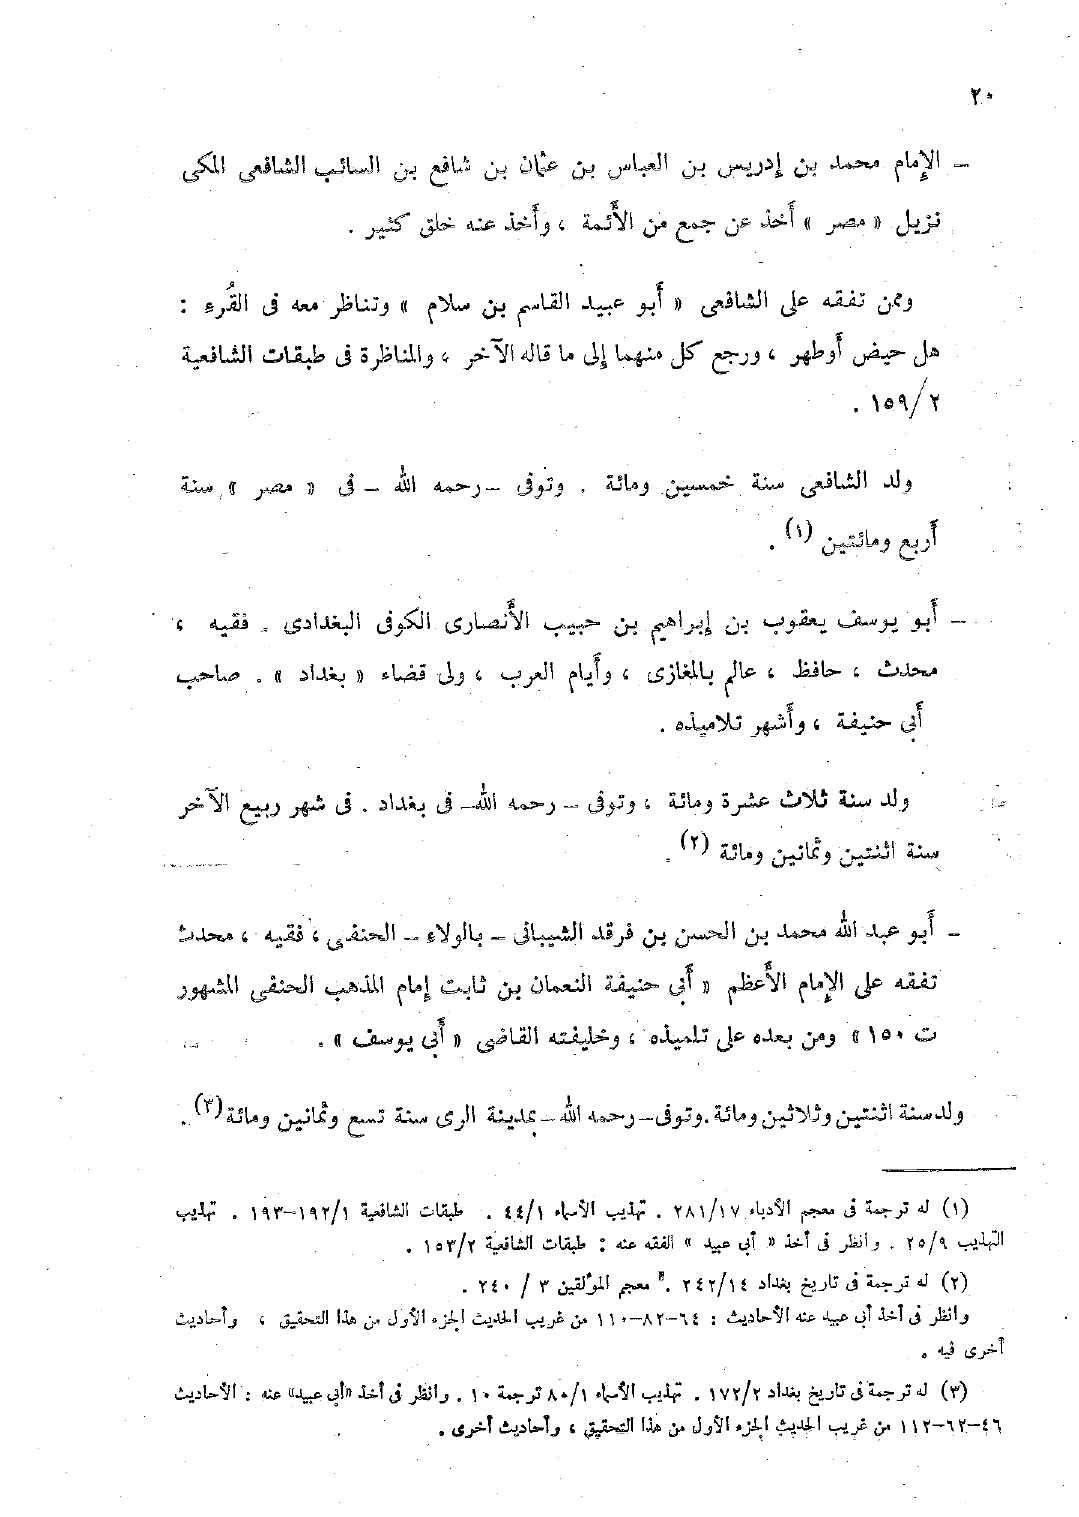 ٢٠
– الإمام محمد بن إدريس بن العباس بن عثمان بن شافع بن السائب الشافعى المكى
نزيل « مصر » أخذ عن جمع من الأئمة ، وأخذ عنه خلق كثير .
وممن تفقه على الشافعى « أبو عبيد القاسم بن سلام » وتناظر معه فى القُرء :
هل حيض أوطهر ، ورجع كل منهما إلى ما قاله الآخر ، والمناظرة فى طبقات الشافعية
٢/١٥٩ .
ولد الشافعى سنة خمسين ومائة . وتوفى – رحمه الله – فى « مصر » سنة
أربع ومائتين (١) .
– أبو يوسف يعقوب بن إبراهيم بن حبيب الأنصارى الكوفى البغدادى . فقيه ،
محدث ، حافظ ، عالم بالمغازى ، وأيام العرب ، ولى قضاء « بغداد » . صاحب
أبى حنيفة ، وأشهر تلاميذه .
ولد سنة ثلاث عشرة ومائة ، وتوفى – رحمه الله – فى بغداد . فى شهر ربيع الآخر
سنة اثنتين وثمانين ومائة (٢) .
– أبو عبد الله محمد بن الحسن بن فرقد الشيبانى – بالولاء – الحنفى ، فقيه ، محدث
تفقه على الإمام الأعظم « أبى حنيفة النعمان بن ثابت إمام المذهب الحنفى المشهور
ت ١٥٠ » ومن بعده على تلميذه ، وخليفته القاضى « أبى يوسف » .
ولد سنة اثنتين وثلاثين ومائة . وتوفى – رحمه الله – بمدينة الرى سنة تسع وثمانين ومائة (٣) .
(١) له ترجمة فى معجم الأدباء ٢٨١/١٧ . تهذيب الأسماء ٤٤/١ . طبقات الشافعية ١٩٢/١–١٩٣ . تهذيب
التهذيب ٢٥/٩ . وانظر فى أخذ « أبى عبيد » الفقه عنه : طبقات الشافعية ١٥٣/٢ .
(٢) له ترجمة فى تاريخ بغداد ٢٤٢/١٤ . معجم المؤلفين ٣ / ٢٤٠ .
وانظر فى أخذ أبى عبيد عنه الأحاديث : ٦٤–٨٢–١١٠ من غريب الحديث الجزء الأول من هذا التحقيق ، وأحاديث
أخرى فيه .
(٣) له ترجمة فى تاريخ بغداد ١٧٢/٢ . تهذيب الأسماء ٨٠/١ ترجمة ١٠ . وانظر فى أخذ «أبى عبيد» عنه : الأحاديث
٤٦–٦٢–١١٢ من غريب الحديث الجزء الأول من هذا التحقيق ، وأحاديث أخرى .